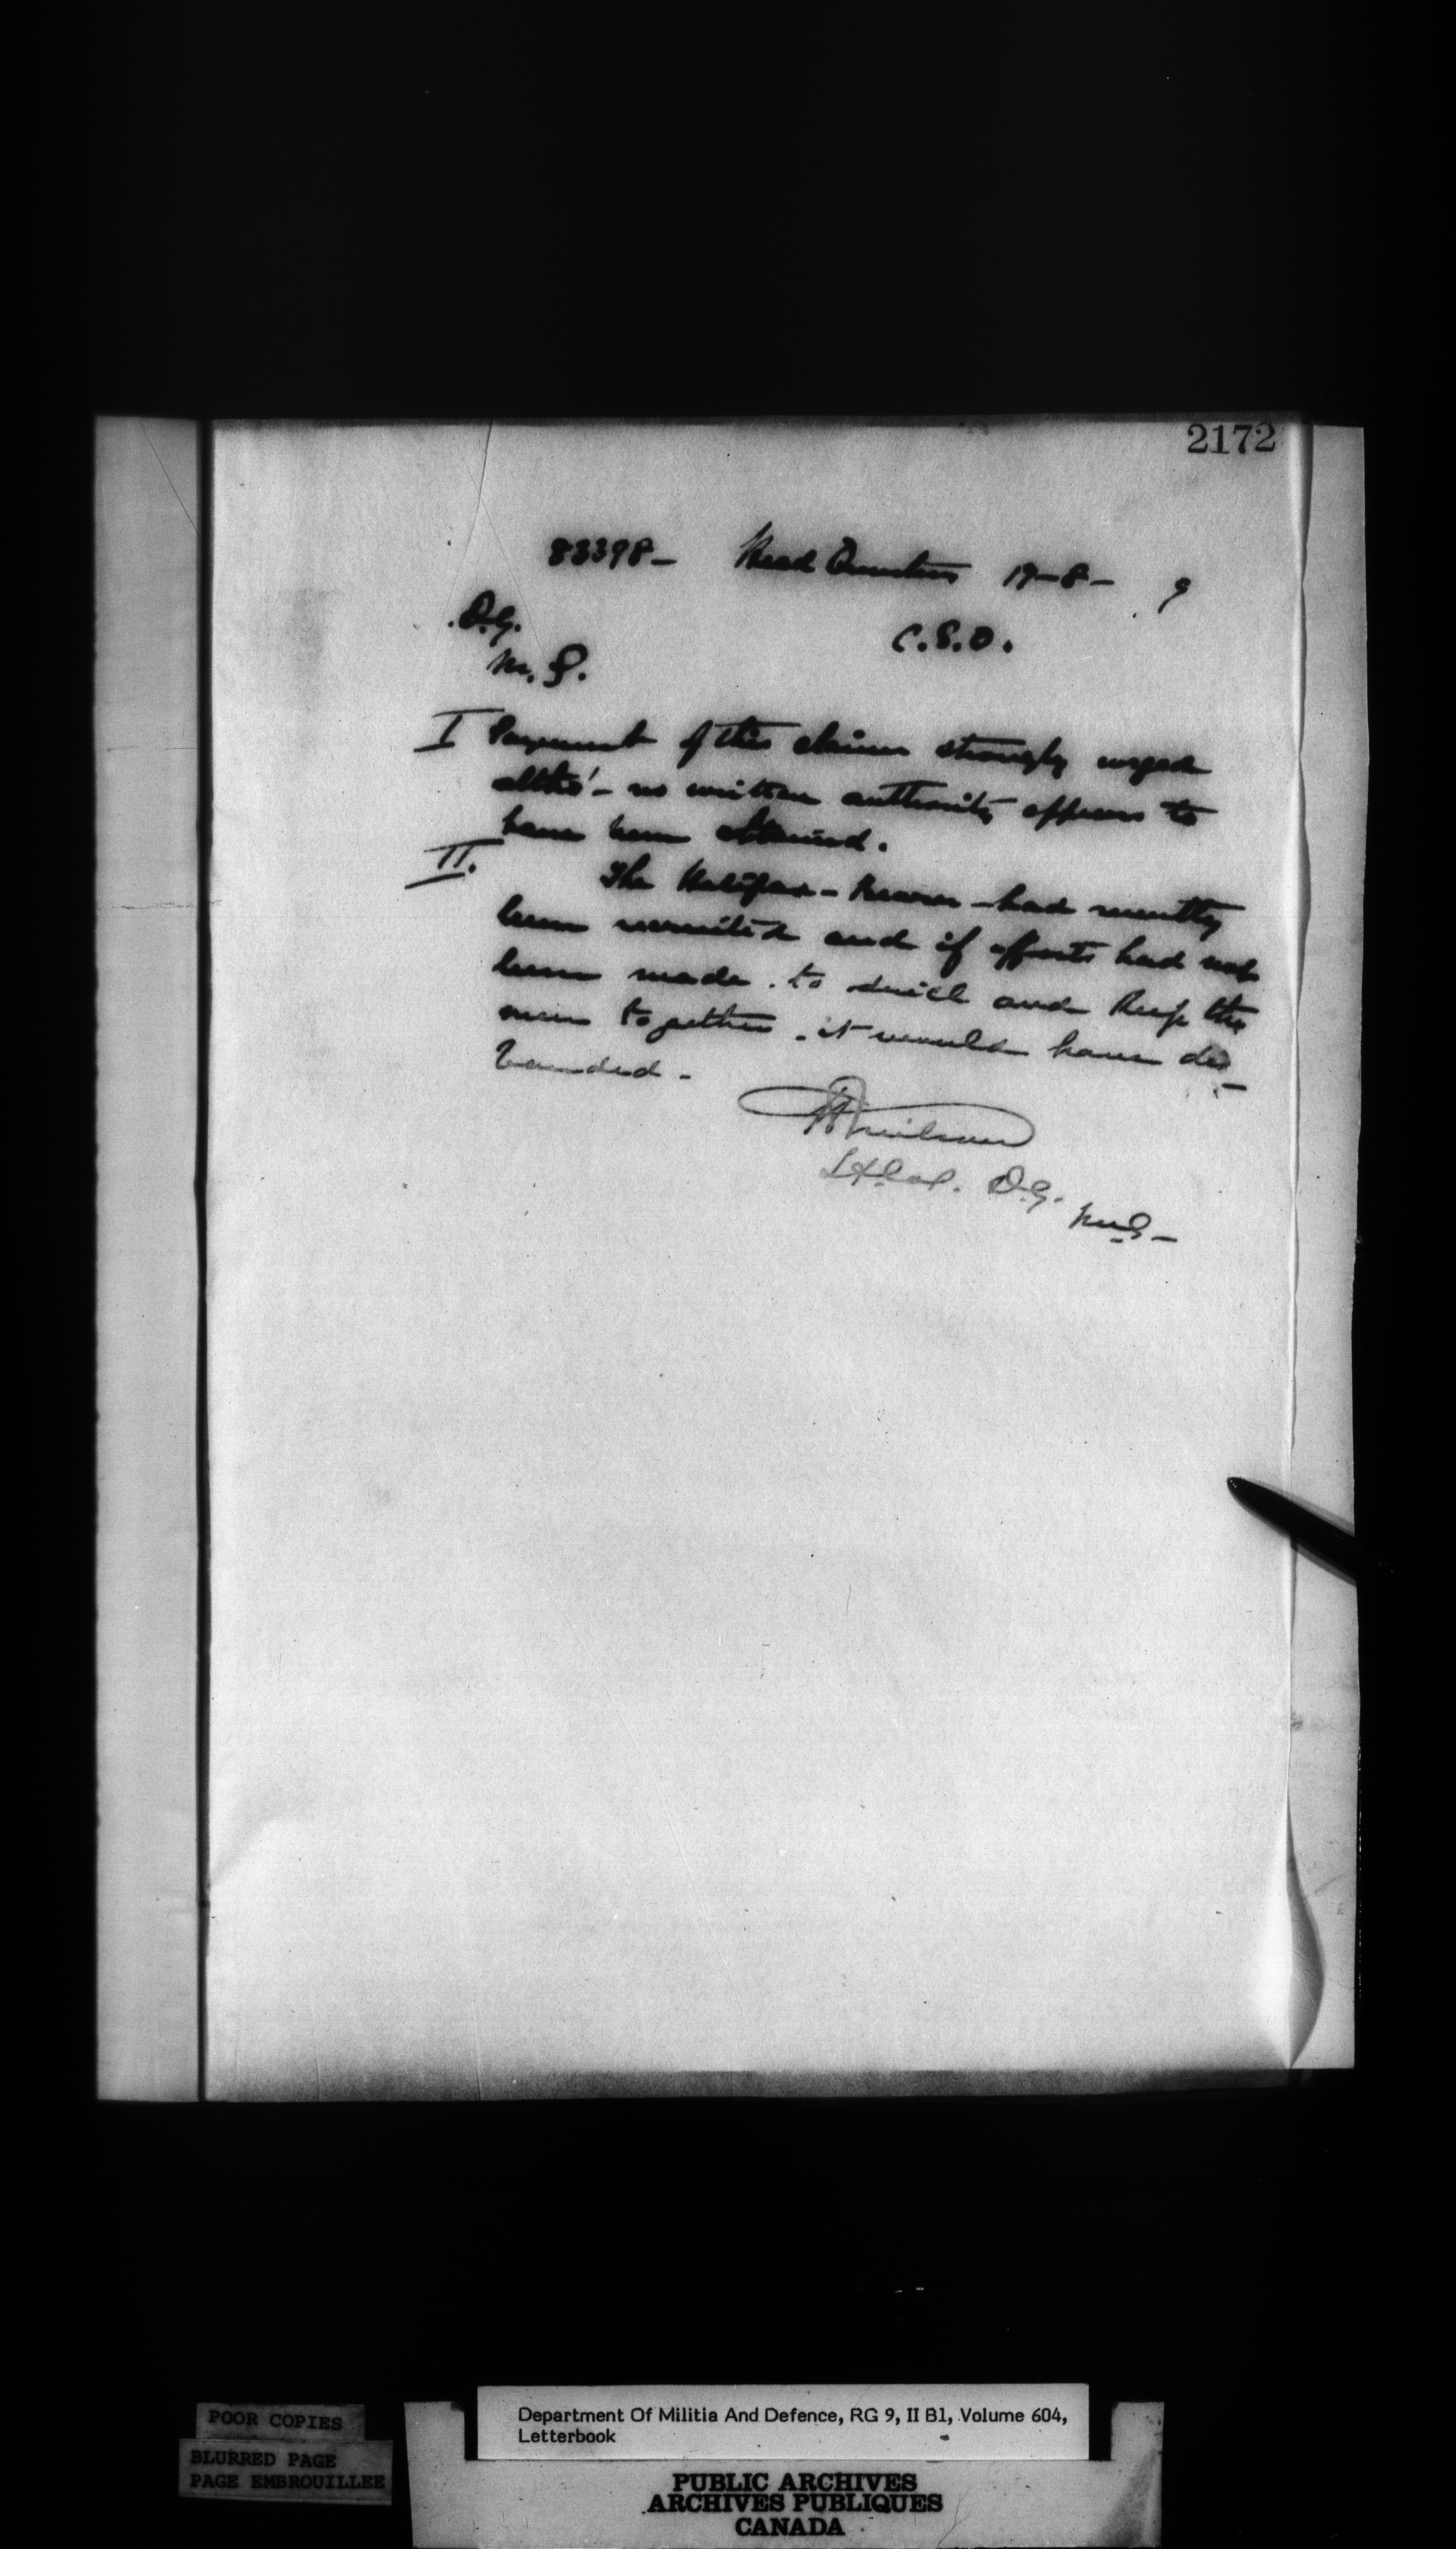 2172
83398- Head Quarters 19-8- 9
D.G.
C.S.O.
M.S.
I Payment of this claim strongly urged
altho'- no written authority appears to
have been obtained.
II.
The Halifax - Bearer - had recently
been recruited and if efforts had not
been made. to drill and keep the
men together. it would have dis-
banded -
Neilson
Lt. Col. D.G.
M.S-
POOR COPIES
BLURRED PAGE
PAGE EMBROUILLEE
Department Of Militia And Defence, RG 9, II B1, Volume 604,
Letterbook
PUBLIC ARCHIVES
ARCHIVES PUBLIQUES
CANADA